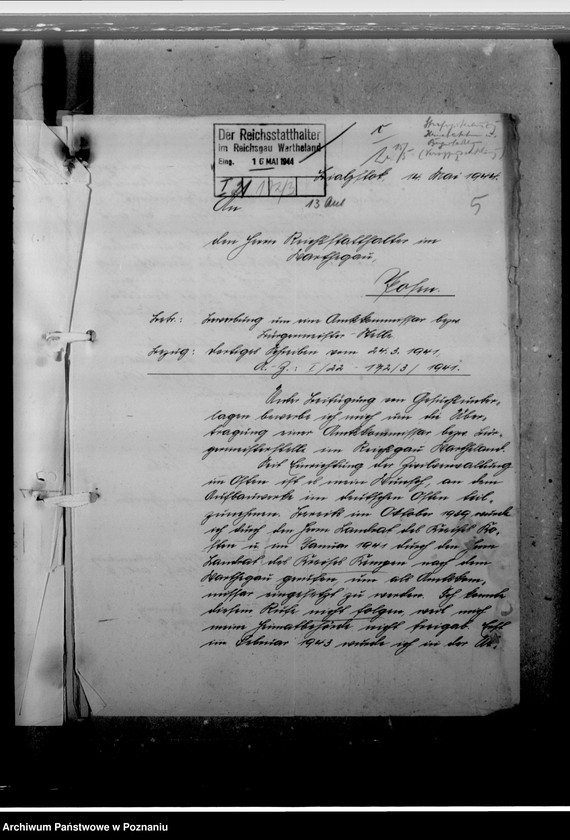 Der Reichsstatthalter
im Reichsgau Wartheland
Eing. 16 MAI 1944
I 21 192/3
Bialystok, 14. Mai 1944.
An 13 Anl
5
den Herrn Reichsstatthalter im
Warthegau,
Posen.
Betr.: Bewerbung um eine Amtskommissar bezw.
Bürgermeister-Stelle
Bezug: dortiges Schreiben vom 24.3.1941,
A.-Z.: I/22 - 192/3/ 1941.
Unter Beifügung von Gesuchsunter-
lagen bewerbe ich mich um die Über-
tragung einer Amtskommissar bezw. Bür-
germeisterstelle im Reichsgau Wartheland.
Seit Einrichtung der Zivilverwaltung
im Osten ist es mein Wunsch, an dem
Aufbauwerke im deutschen Osten teil-
zunehmen. Bereits im Oktober 1939 wurde
ich durch den Herrn Landrat des Kreises Ko-
sten u. im Januar 1941 durch den Herrn
Landrat des Kreises Kempen nach dem
Warthegau gerufen, um als Amtskom-
missar eingesetzt zu werden. Ich konnte
diesem Rufe nicht folgen, weil mich
meine Heimatbehörde nicht freigab. Erst
im Februar 1943 wurde ich in der
Archiwum Państwowe w Poznaniu